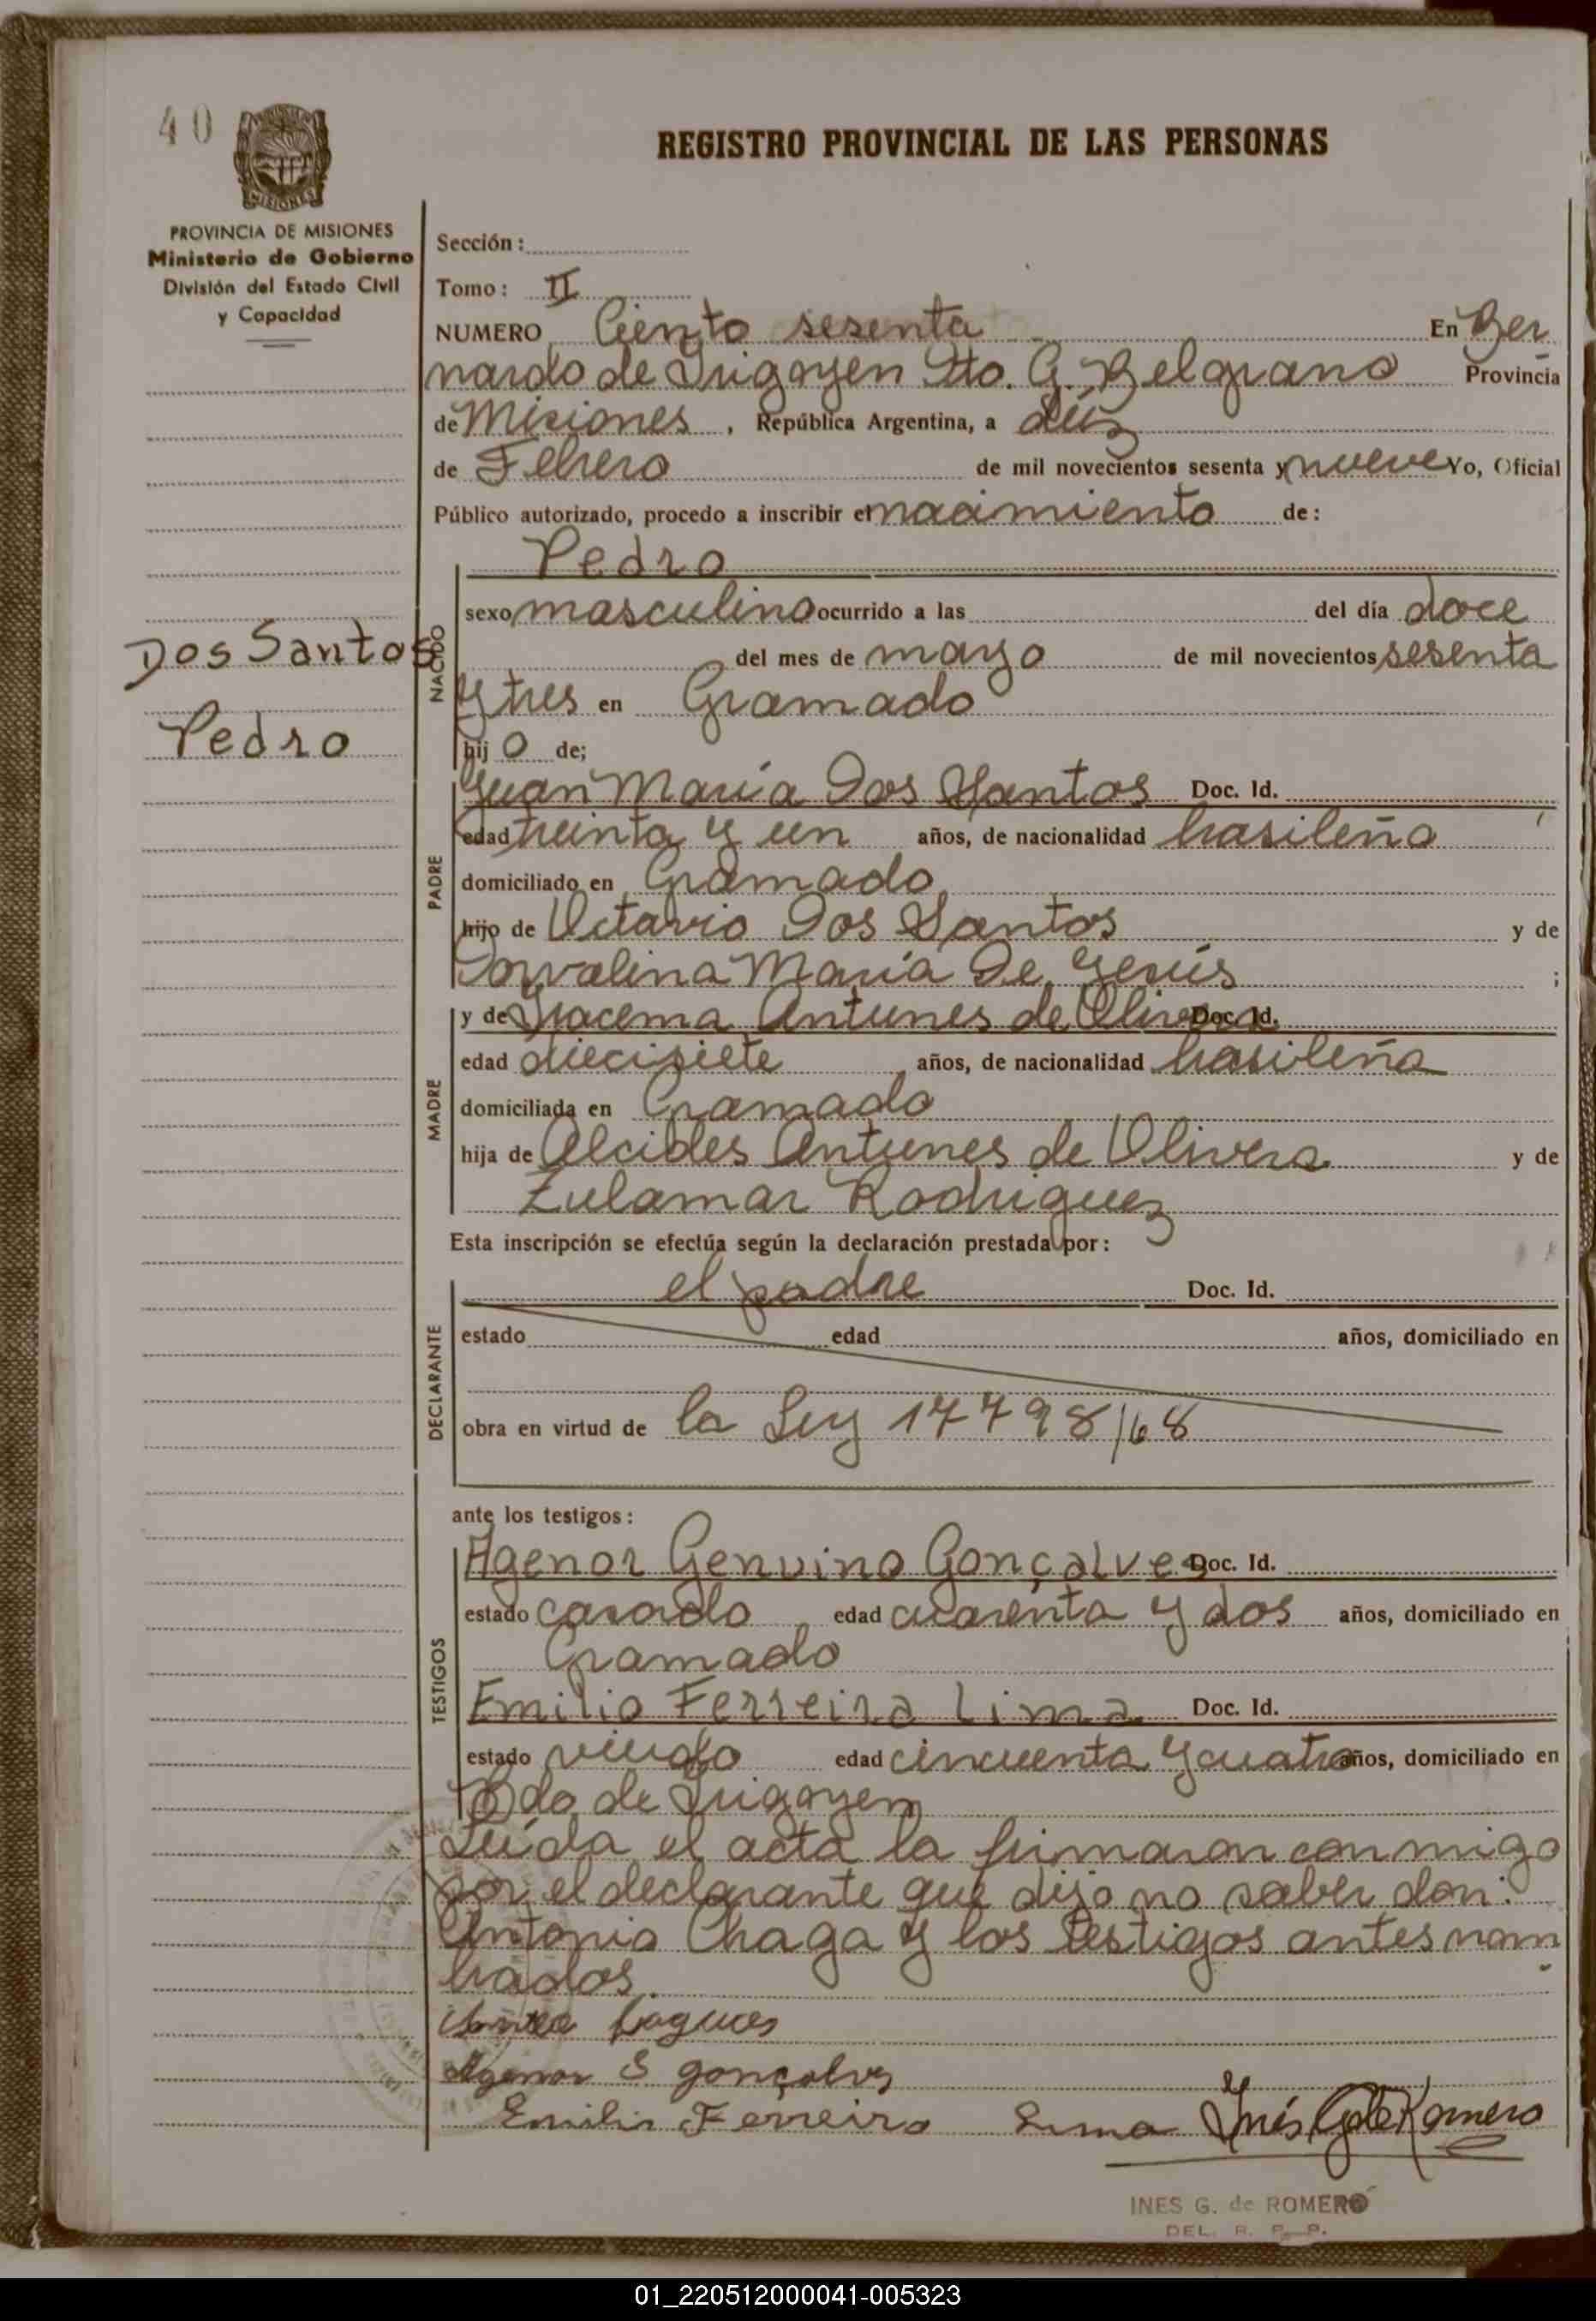 40
MISIONES
PROVINCIA DE MISIONES
Ministerio de Gobierno
División del Estado Civil
y Capacidad
REGISTRO PROVINCIAL DE LAS PERSONAS
Sección:
Tomo: II
NUMERO Ciento sesenta En Ber
nardo de Irigoyen Dto. G. Belgrano Provincia
de Misiones, República Argentina, a diéz
de Febrero de mil novecientos sesenta y nueve Yo, Oficial
Público autorizado, procedo a inscribir el nacimiento de:
Pedro
NACIDO
sexo masculino ocurrido a las del día doce
Dos Santos
del mes de mayo de mil novecientos sesenta
y tres en Gramado
Pedro
hijo de;
Juan María Dos Santos Doc. Id.
PADRE
edad treinta y un años, de nacionalidad brasileña
domiciliado en Gramado
hijo de Octavio Dos Santos y de
Dorvalina María De Jesús ;
y de Iracema Antunes de Olivera Doc. Id.
MADRE
edad diecisiete años, de nacionalidad brasileña
domiciliada en Gramado
hija de Alcides Antunes de Olivera y de
Zulamar Rodriguez
Esta inscripción se efectúa según la declaración prestada por:
el padre Doc. Id.
DECLARANTE
estado edad años, domiciliado en
obra en virtud de la Ley 17798/68
ante los testigos:
Agenor Genuino Gonçalves Doc. Id.
TESTIGOS
estado casado edad cuarenta y dos años, domiciliado en
Gramado
Emilio Ferreira Lima Doc. Id.
estado viudo edad cincuenta y cuatro años, domiciliado en
Bdo de Irigoyen
Leída el acta la firmaron conmigo
por el declarante que dijo no saber don:
Antonio Chaga y los testigos antes nom
brados.
Agenor S gonçalves
Emilio Ferreira Lima Inés G de Romero
INES G. de ROMERO
DEL. R. P. P.
01_220512000041-005323